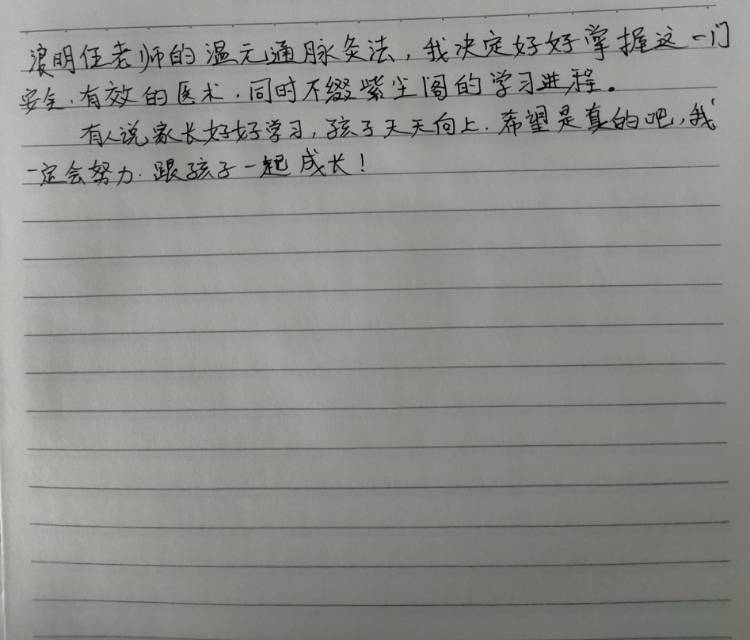 浪明任老师的温元通脉灸法，我决定好好掌握这一门
安全.有效的医术.同时不缀紫尘阁的学习进程。
有人说家长好好学习，孩子天天向上.希望是真的吧，我
一定会努力.跟孩子一起成长！